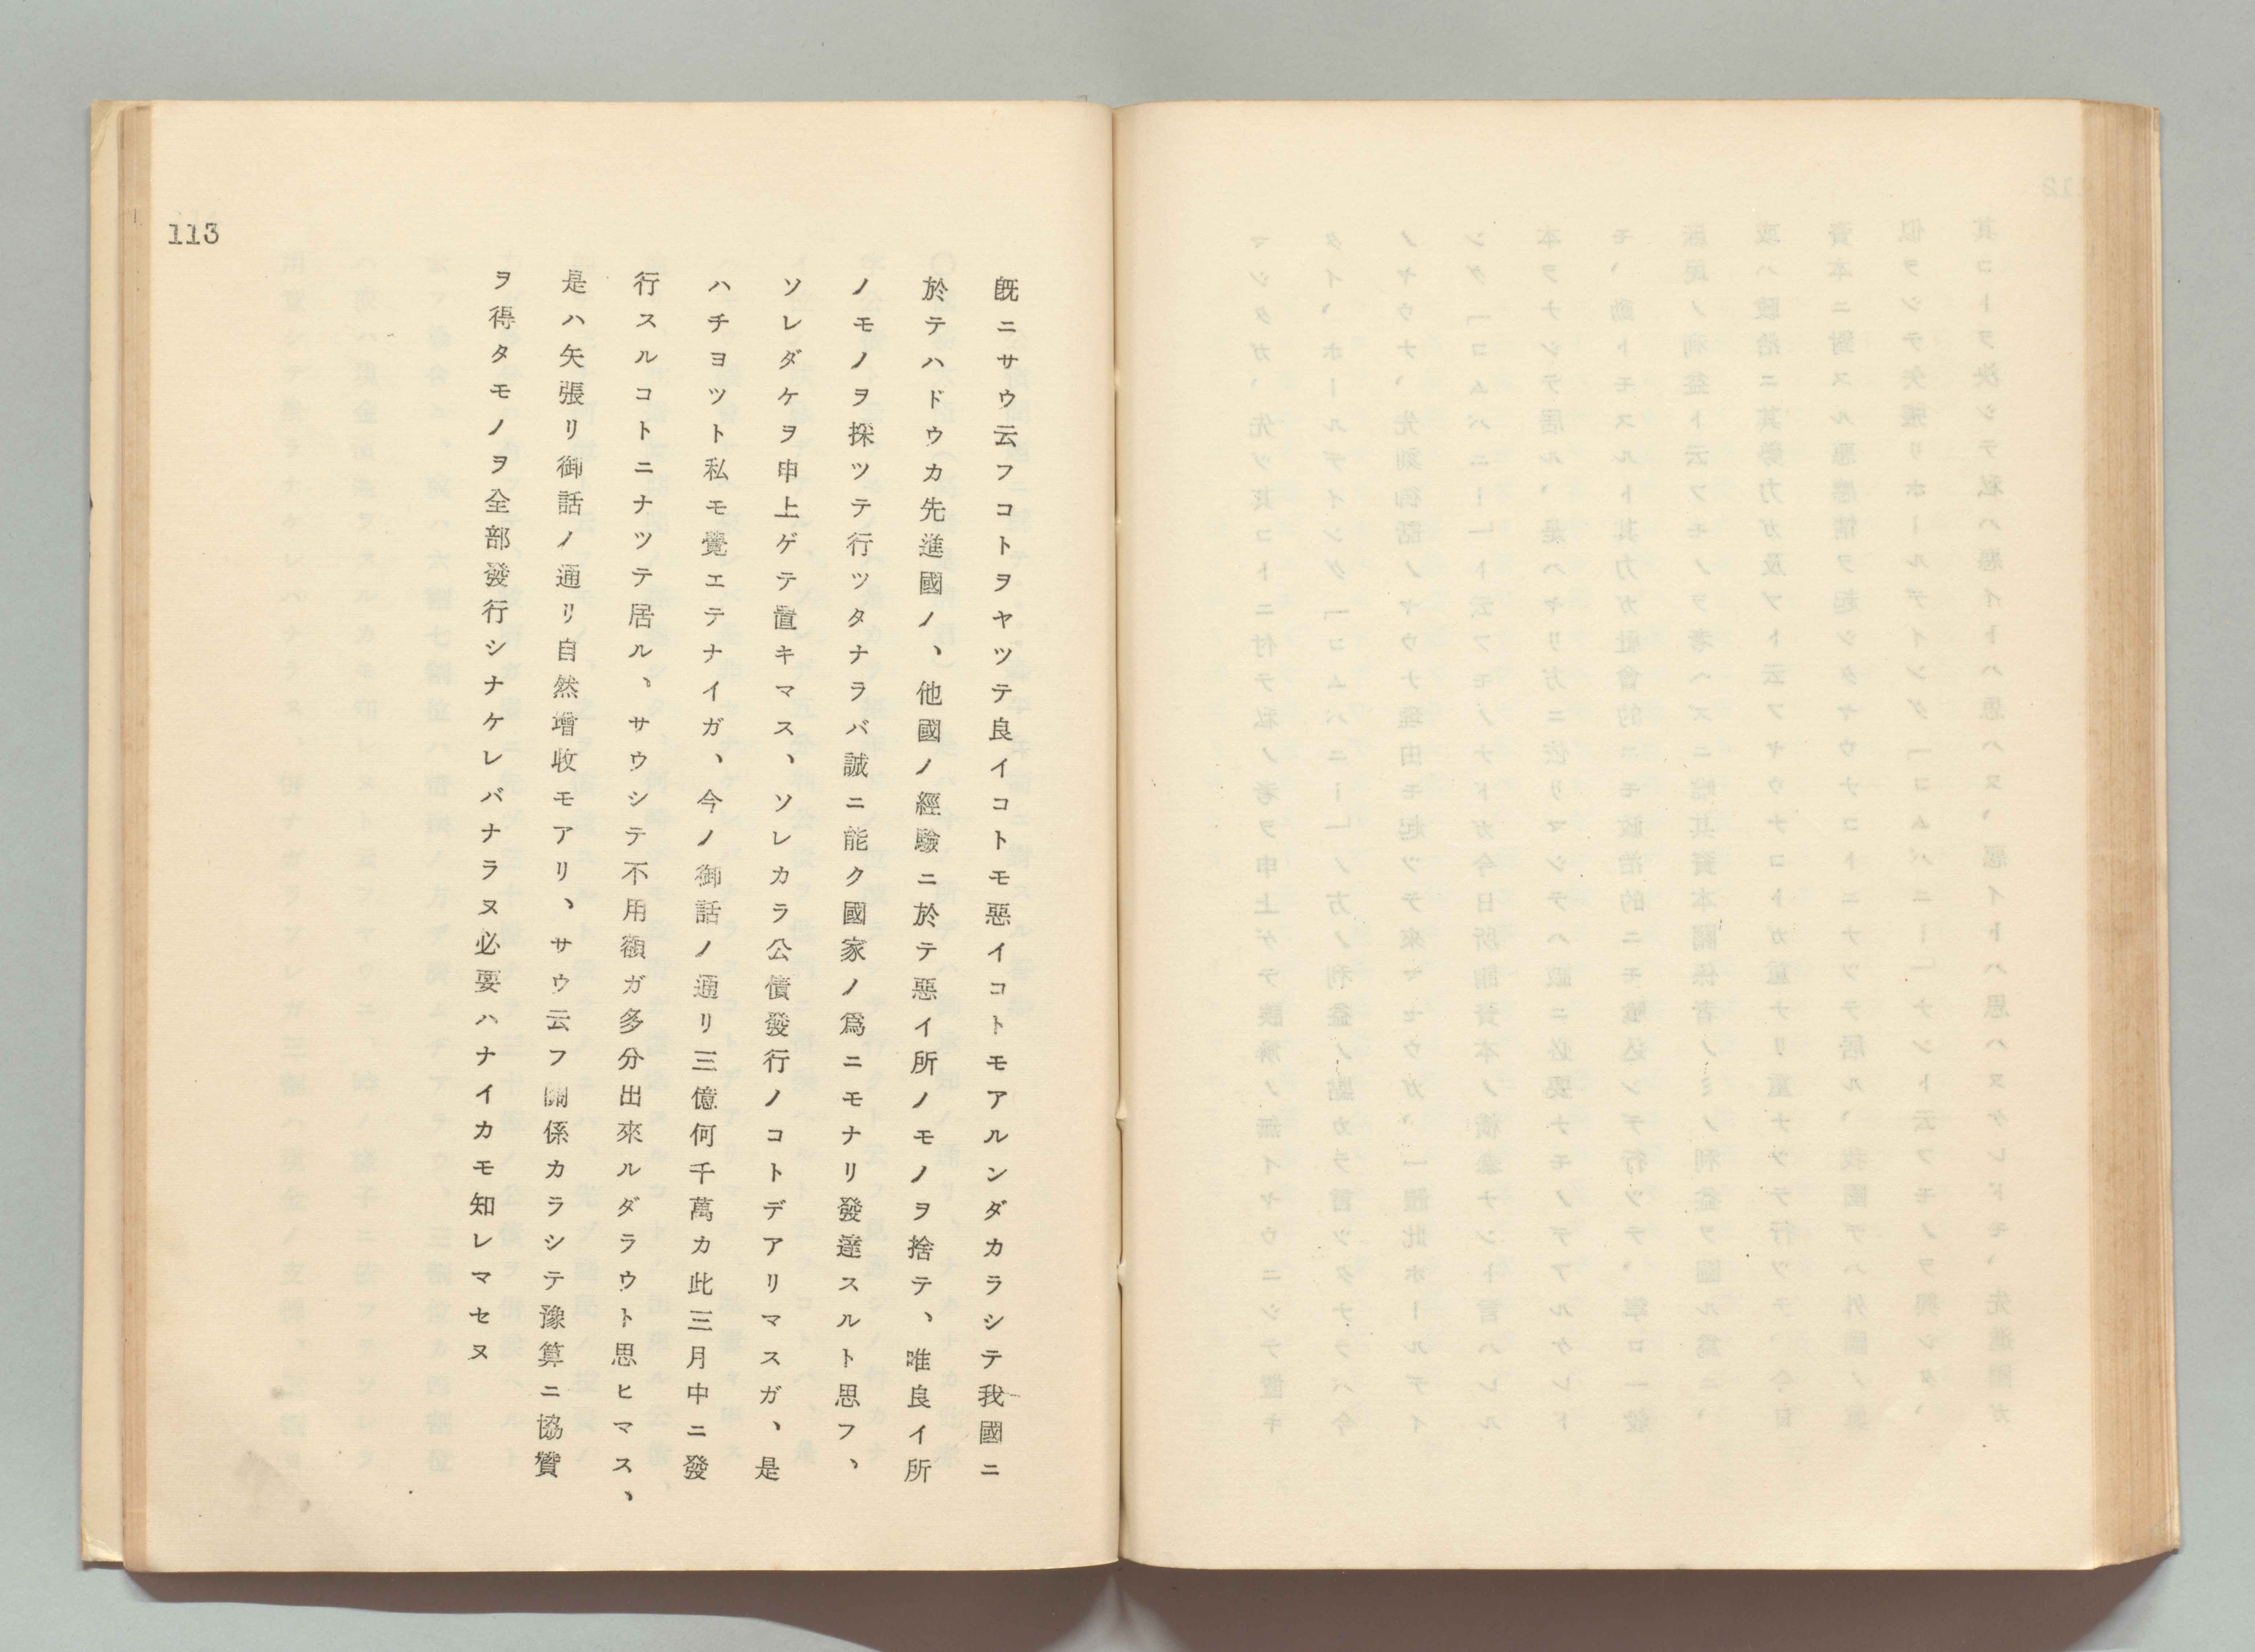 113
既ニサウ云フコトヲヤツテ良イコトモ惡イコトモアルンダカラシテ我國ニ
於テハドウカ先進國ノ、他國ノ經驗ニ於テ惡イ所ノモノヲ捨テ、唯良イ所
ノモノヲ採ツテ行ツタナラバ誠ニ能ク國家ノ爲ニモナリ發達スルト思フ、
ソレダケヲ申上ゲテ置キマス、ソレカラ公債發行ノコトデアリマスガ、是
ハチヨツト私モ覺エテナイガ、今ノ御話ノ通リ三億何千萬カ此三月中ニ發
行スルコトニナツテ居ル、サウシテ不用額ガ多分出來ルダラウト思ヒマス、
是ハ矢張リ御話ノ通リ自然增收モアリ、サウ云フ關係カラシテ豫算ニ協贊
ヲ得タモノヲ全部發行シナケレバナラヌ必要ハナイカモ知レマセヌ